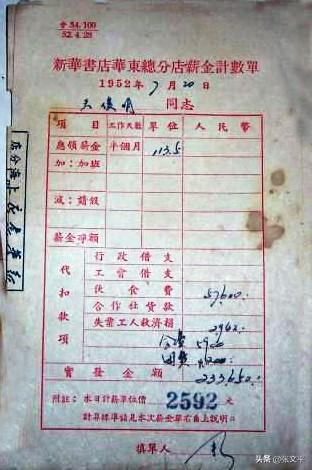 會 54/100
52.4.28
新華書店華東總分店薪金計數單
1952年7月20日
同志
項目 工作天數 單位 人民幣
應領薪金 半個月 113.5
加：加班
減：請假
薪金淨額
代扣款項
行政借支
工會借支
伙食費 57600
合作社貨款
失業工人救濟捐 2942
會費 5900
團費
實發金額 233,650
附註：本日計薪單位價 2592 元
計算標準請見本次薪金單右角上說明
填單人
头条 @张文平